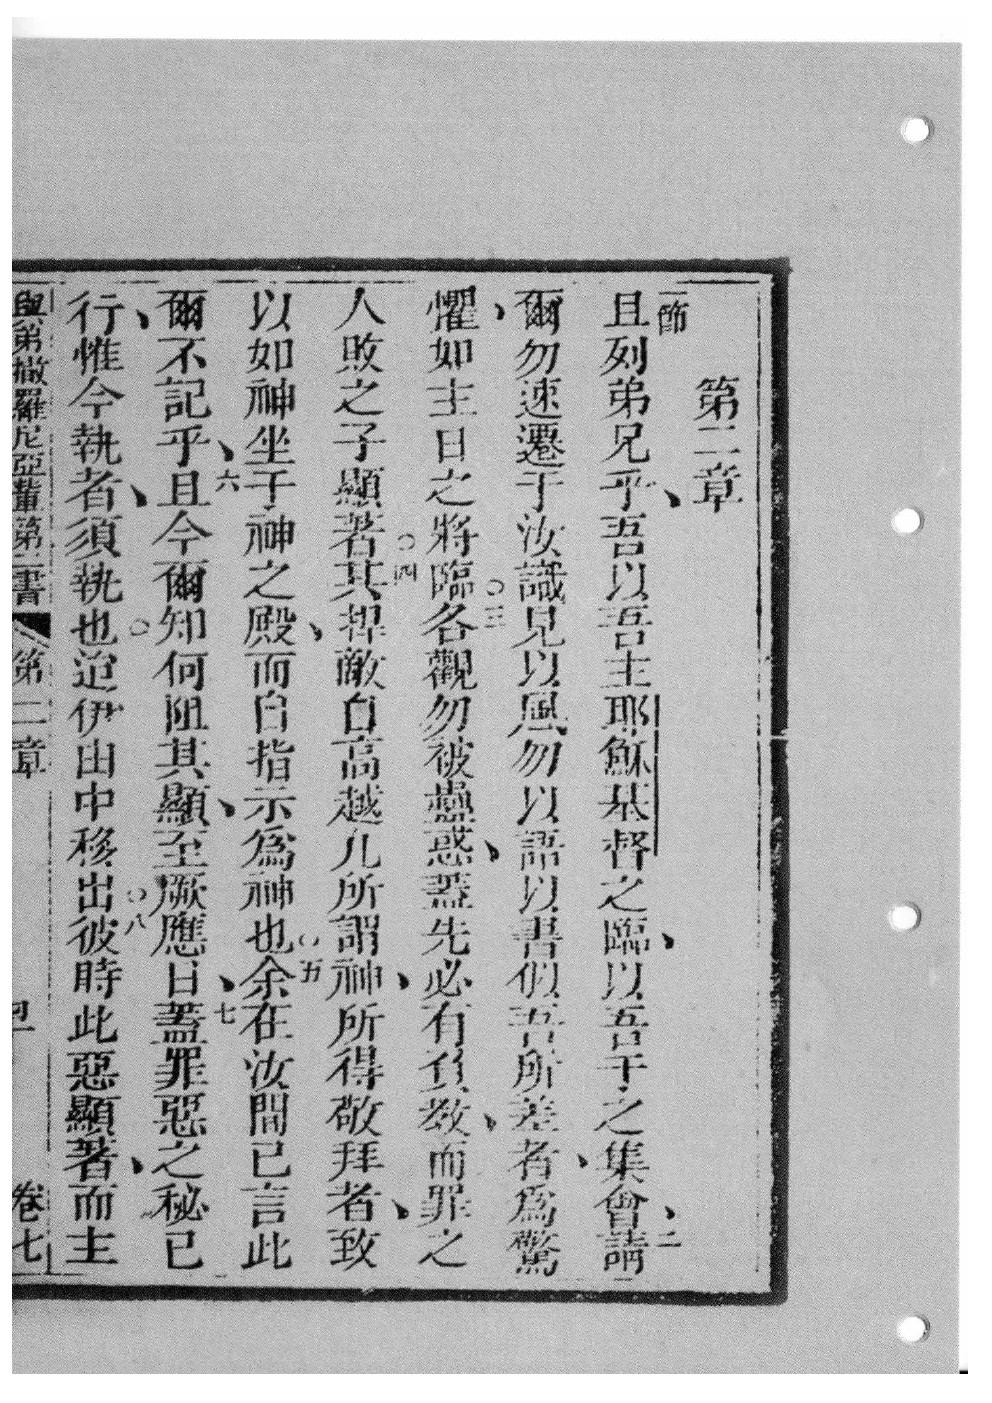 第二章
一節
且列弟兄乎、吾以吾主耶穌基督之臨、以吾于之集會、二請
爾勿速遷于汝識見以風勿以語以書似吾所差者、爲驚
懼、如主日之將臨○三各觀勿被蠱惑、蓋先必有負教、而罪之
人敗之子顯著○四其捍敵自高越凡所謂神、所得敬拜者、致
以如神坐于神之殿、而自指示爲神也○五余在汝間已言此
爾不記乎、六且今爾知何阻其顯、至厥應日、七蓋罪惡之秘已
行、惟今執者、須執也○迨伊由中移出○八彼時此惡顯著、而主
與弟撒羅尼亞輩第二書 第二章 四 卷七